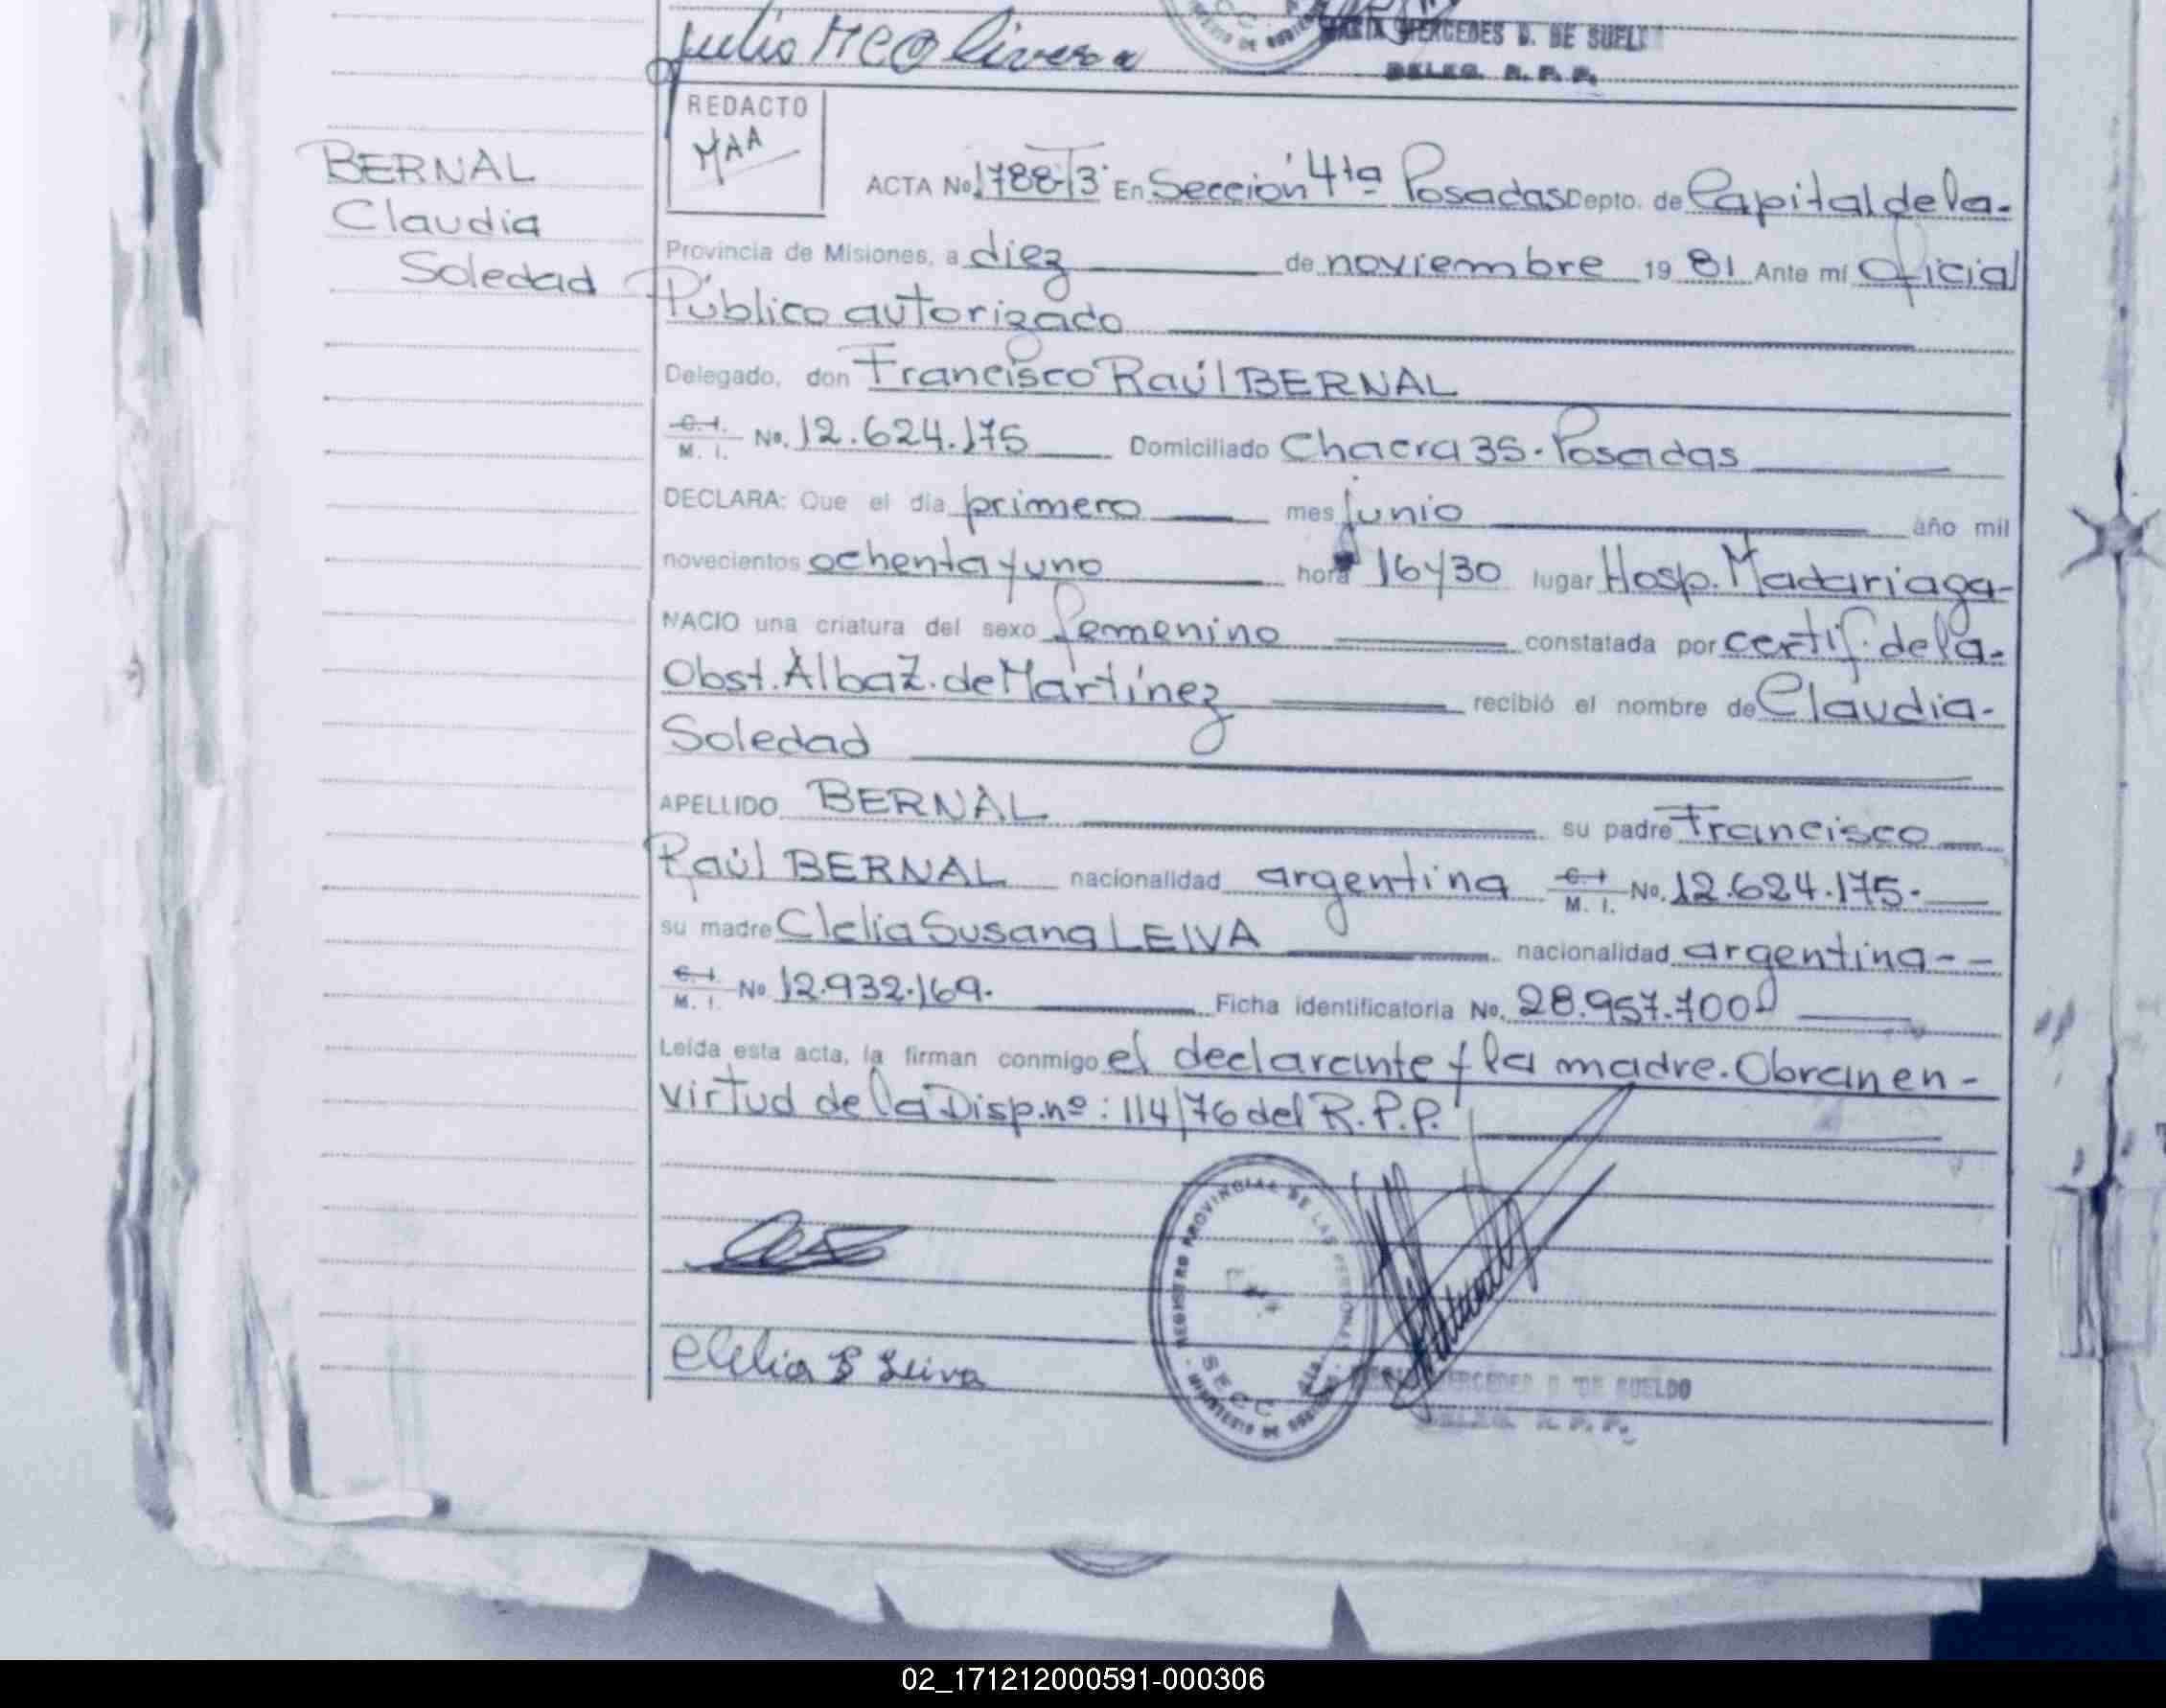 Julio MCOlivera
MARIA MERCEDES D. DE SUELDO
DELEG. R. P. P.
REDACTO
MAA
BERNAL
Claudia
Soledad
ACTA No. 1788-T3 En Sección 4ta Posadas Depto. de Capital de la-
Provincia de Misiones, a diez de noviembre 19 81 Ante mí Oficial
Público autorizado
Delegado, don Francisco Raúl BERNAL
C. I. M. I. No. 12.624.175 Domiciliado Chacra 35.Posadas
DECLARA: Que el día primero mes junio año mil
novecientos ochenta y uno hora 16y30 lugar Hosp. Madariaga-
NACIO una criatura del sexo femenino constatada por certif. de la-
Obst. Alba Z. de Martínez recibió el nombre de Claudia-
Soledad
APELLIDO BERNAL su padre Francisco
Raúl BERNAL nacionalidad argentina C. I. M. I. No. 12.624.175.
su madre Clelia Susana LEIVA nacionalidad argentina--
C. I. M. I. No 12.932.169. Ficha identificatoria No. 28.957.700
Leída esta acta, la firman conmigo el declarante y la madre. Obran en-
virtud de la Disp.nº: 114/76 del R.P.P.
REGISTRO PROVINCIAL DE LAS PERSONAS
SECC. 4ta
MINISTERIO DE GOBIERNO
Clelia S Leiva
MERCEDES D. DE SUELDO
DELEG. R. P. P.
02_171212000591-000306